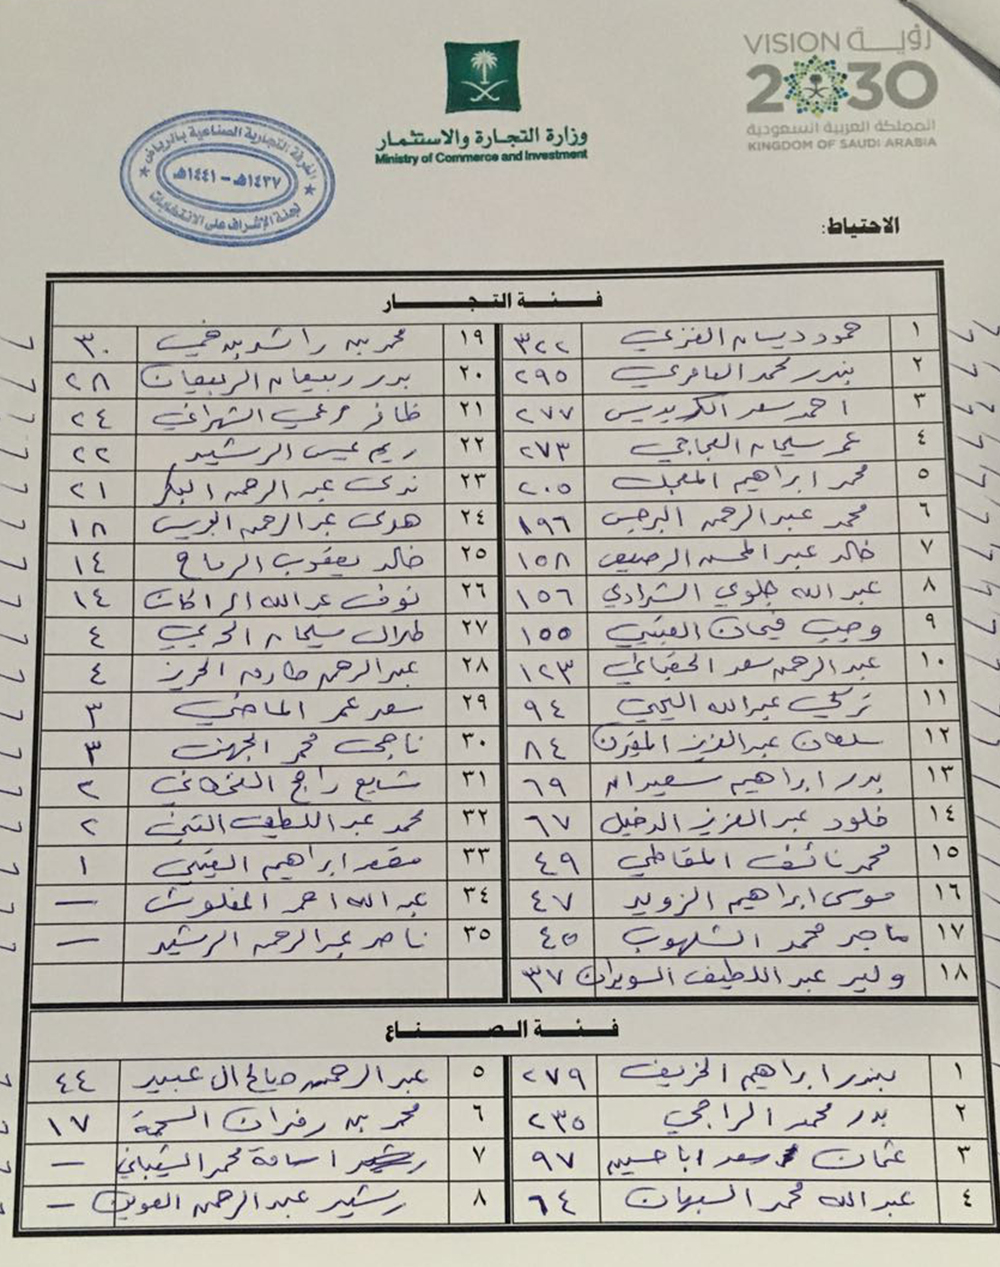 VISION رؤيـــة
2030
المملكة العربية السعودية
KINGDOM OF SAUDI ARABIA
وزارة التجارة والاستثمار
Ministry of Commerce and Investment
الغرفة التجارية الصناعية بالرياض
١٤٣٧هـ - ١٤٤١هـ
لجنة الإشراف على الانتخابات
الاحتياط:
فـئـة التـجـار
١ حمود ديسان العنزي ٣٢٢
٢ بندر محمد العامري ٢٩٥
٣ احمد سعد الكريديس ٢٧٧
٤ عمر سليمان العجاجي ٢٧٣
٥ محمد ابراهيم المعجل ٢٠٥
٦ محمد عبدالرحمن البرجس ١٩٦
٧ خالد عبدالمحسن ١٥٨
٨ عبدالله جلوي الشرادي ١٥٦
٩ فيحان العتيبي ١٥٥
١٠ عبدالرحمن سعد الحقباني ١٢٣
١١ تركي عبدالله ٩٤
١٢ سلطان عبدالعزيز المقرن ٨٤
١٣ بدر ابراهيم سعيدان ٦٩
١٤ خلود عبدالعزيز الدخيل ٦٧
١٥ محمد نائف المقاطي ٤٩
١٦ موسى ابراهيم الزويد ٤٧
١٧ ماجد محمد الشلهوب ٤٥
١٨ وليد عبداللطيف السويدان ٣٧
١٩ محمد بن راشد بن ٣٠
٢٠ بدر ربيعان الربيعان ٢٨
٢١ ظافر مرعي الشهراني ٢٤
٢٢ ريم الرشيد ٢٢
٢٣ ندى عبدالرحمن البكر ٢١
٢٤ هدى عبدالرحمن ١٨
٢٥ خالد يعقوب الرماح ١٤
٢٦ نوف عبدالله الراكان ١٤
٢٧ طلال سليمان الحربي ٤
٢٨ عبدالرحمن طارق ٤
٢٩ سعد عمر الماضي ٣
٣٠ ناجي محمد الجهني ٣
٣١ شايع راجح القحطاني ٢
٣٢ محمد عبداللطيف ٢
٣٣ ابراهيم العتيبي ١
٣٤ عبدالله احمد المغلوث —
٣٥ ناصر عبدالرحمن الرشيد —
فـئـة الصـنـاع
١ بندر ابراهيم الخريف ٢٧٩
٢ بدر محمد الراجحي ٢٣٥
٣ عثمان سعد اباحسين ٩٧
٤ عبدالله محمد السبهان ٦٤
٥ عبدالرحمن صالح ال عبيد ٤٤
٦ محمد بن ١٧
٧ اسامة محمد الشيباني —
٨ رشيد عبدالرحمن —